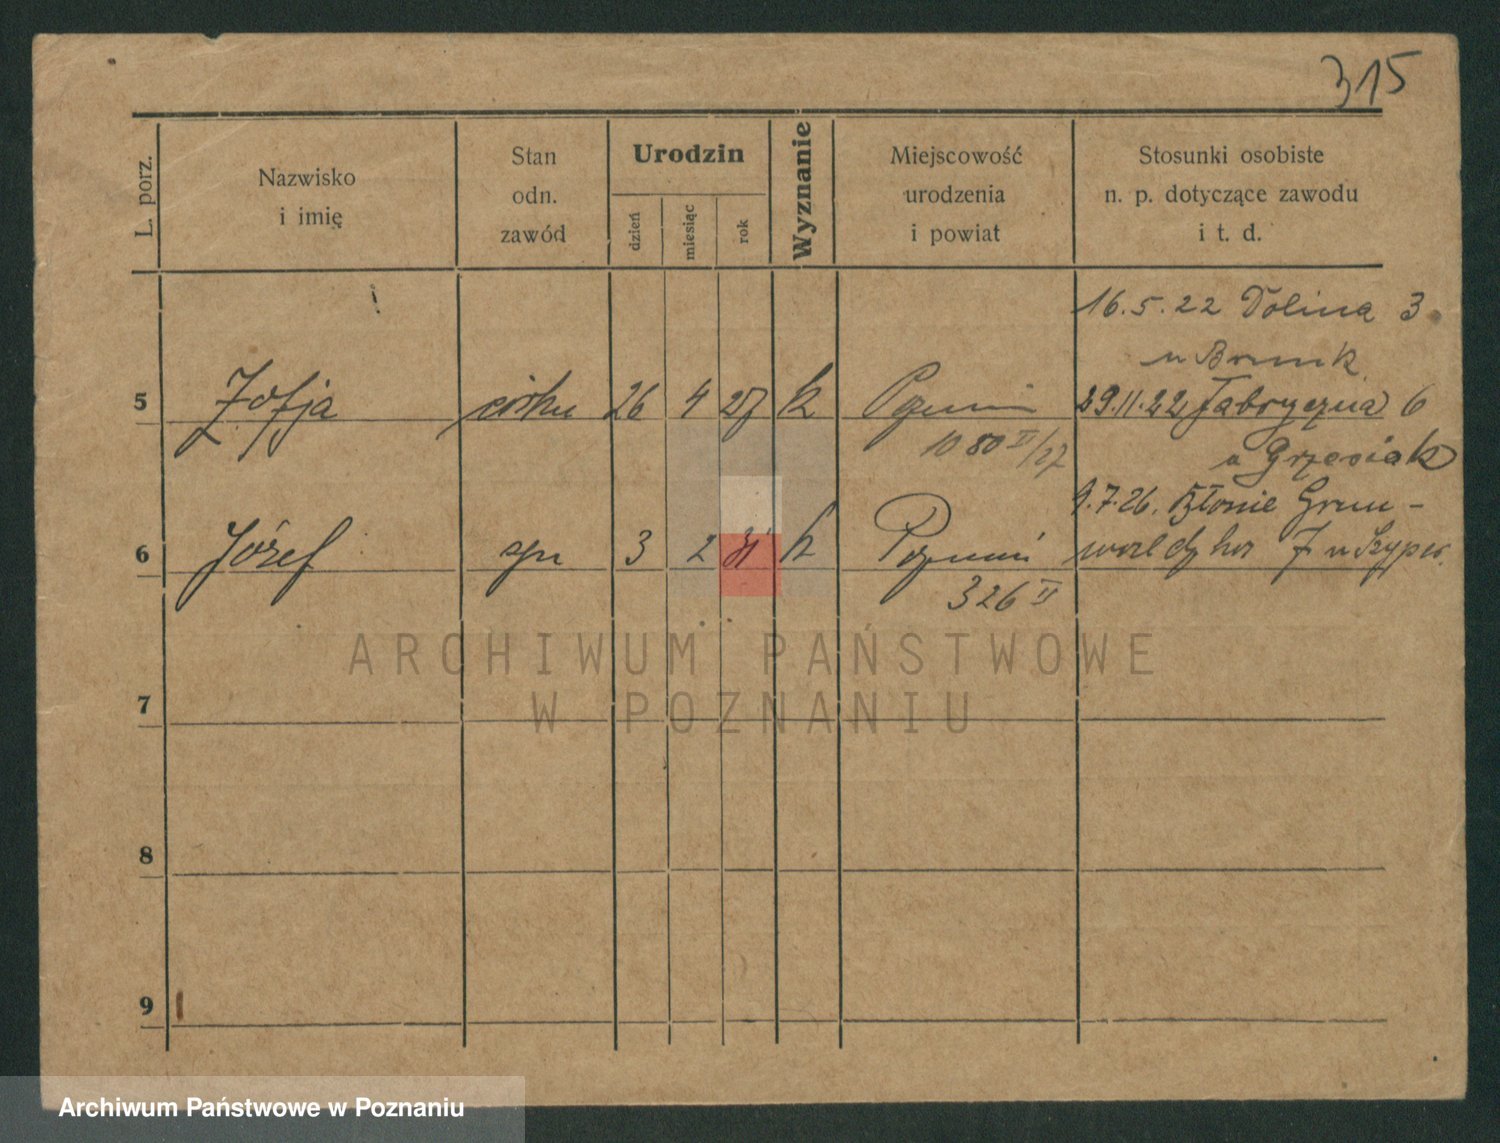 315
L. porz.
Nazwisko
i imię
Stan
odn.
zawód
Urodzin
dzień
miesiąc
rok
Wyznanie
Miejscowość
urodzenia
i powiat
Stosunki osobiste
n. p. dotyczące zawodu
i t. d.
16.5.22 Dolina 3
u
5 Zofja córka 26 4 27 k Poznań
1080 II/27
29.11.22 Fabryczna 6
u Grzesiak
9.7.26. Błonie Grun-
6 Józef syn 3 2 31 k Poznań
326 II
waldzkie 7 u
ARCHIWUM PAŃSTWOWE
W POZNANIU
7
8
9
Archiwum Państwowe w Poznaniu